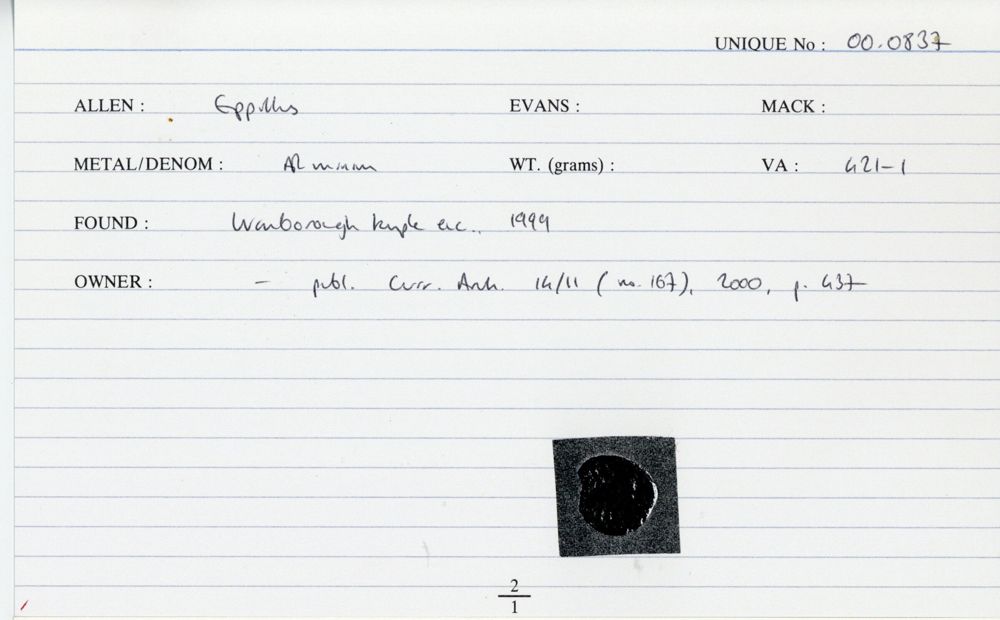 UNIQUE No : 00.0837
ALLEN : Eppillus EVANS : MACK :
METAL/DENOM : AR minim WT. (grams) : VA : 421-1
FOUND : Wanborough temple exc.. 1999
OWNER : — publ. Curr. Arch. 14/11 (no. 167), 2000, p. 437
2
1